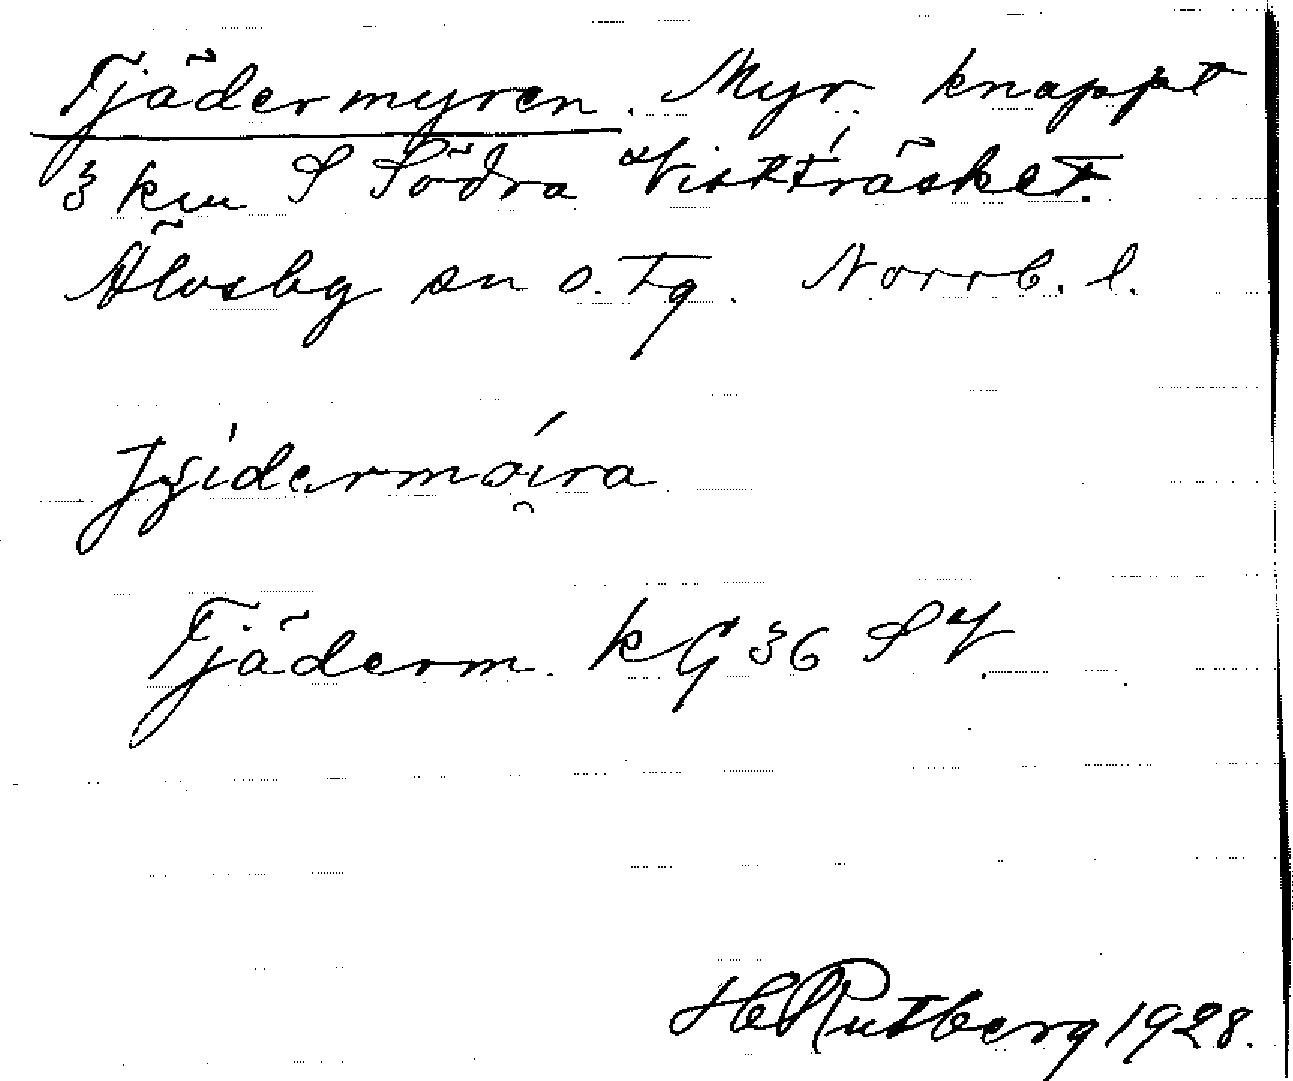 Tjädermyren. Myr knappt
3 km S Södra Vistträsket.
Älvsby sn o. Tg. Norrb. l.
Tjäderm. kG 36 SV.
H Rutberg 1928.